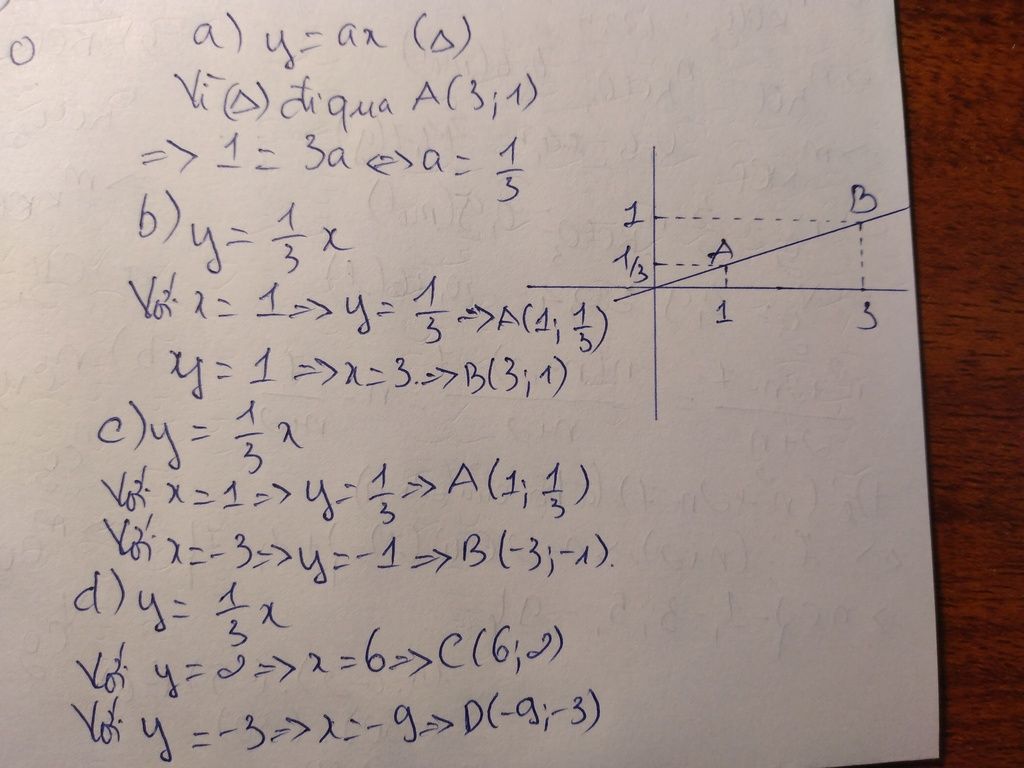 a) y = ax (Δ)
Vì (Δ) đi qua A(3;1)
=> 1 = 3a <=> a = 1/3
b) y = 1/3 x
Với x = 1 => y = 1/3 => A(1; 1/3)
xy = 1 => x = 3 => B(3;1)
c) y = 1/3 x
Với x = 1 => y = 1/3 => A(1; 1/3)
Với x = -3 => y = -1 => B(-3;-1).
d) y = 1/3 x
Với y = 2 => x = 6 => C(6;2)
Với y = -3 => x = -9 => D(-9;-3)
B
1
A
1/3
1
3